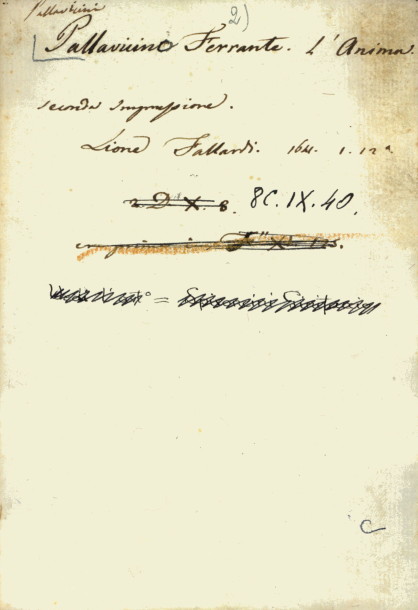 Pallavicini
2)
Pallavicino Ferrante. L'Anima.
seconda Impressione.
Lione Fallardi. 164. 1. 12°
2. D. X. 8. 8C. IX. 40.
C